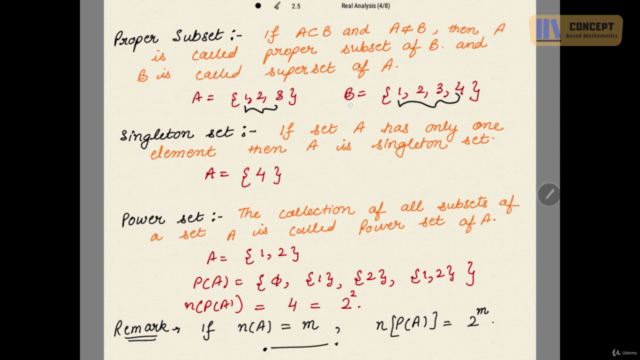 2.5
Real Analysis (4/8)
CONCEPT
Based Mathematics
Proper Subset :- If A⊂B and A≠B, then A
is called proper subset of B. and
B is called superset of A.
A = {1, 2, 3} B = {1, 2, 3, 4}
Singleton set :- If set A has only one
element then A is singleton set.
A = {4}
Power set :- The collection of all subsets of
a set A is called Power set of A.
A = {1, 2}
P(A) = {ϕ, {1}, {2}, {1, 2}}
n(P(A)) = 4 = 2².
Remark, If n(A) = m, n[P(A)] = 2ᵐ.
Udemy